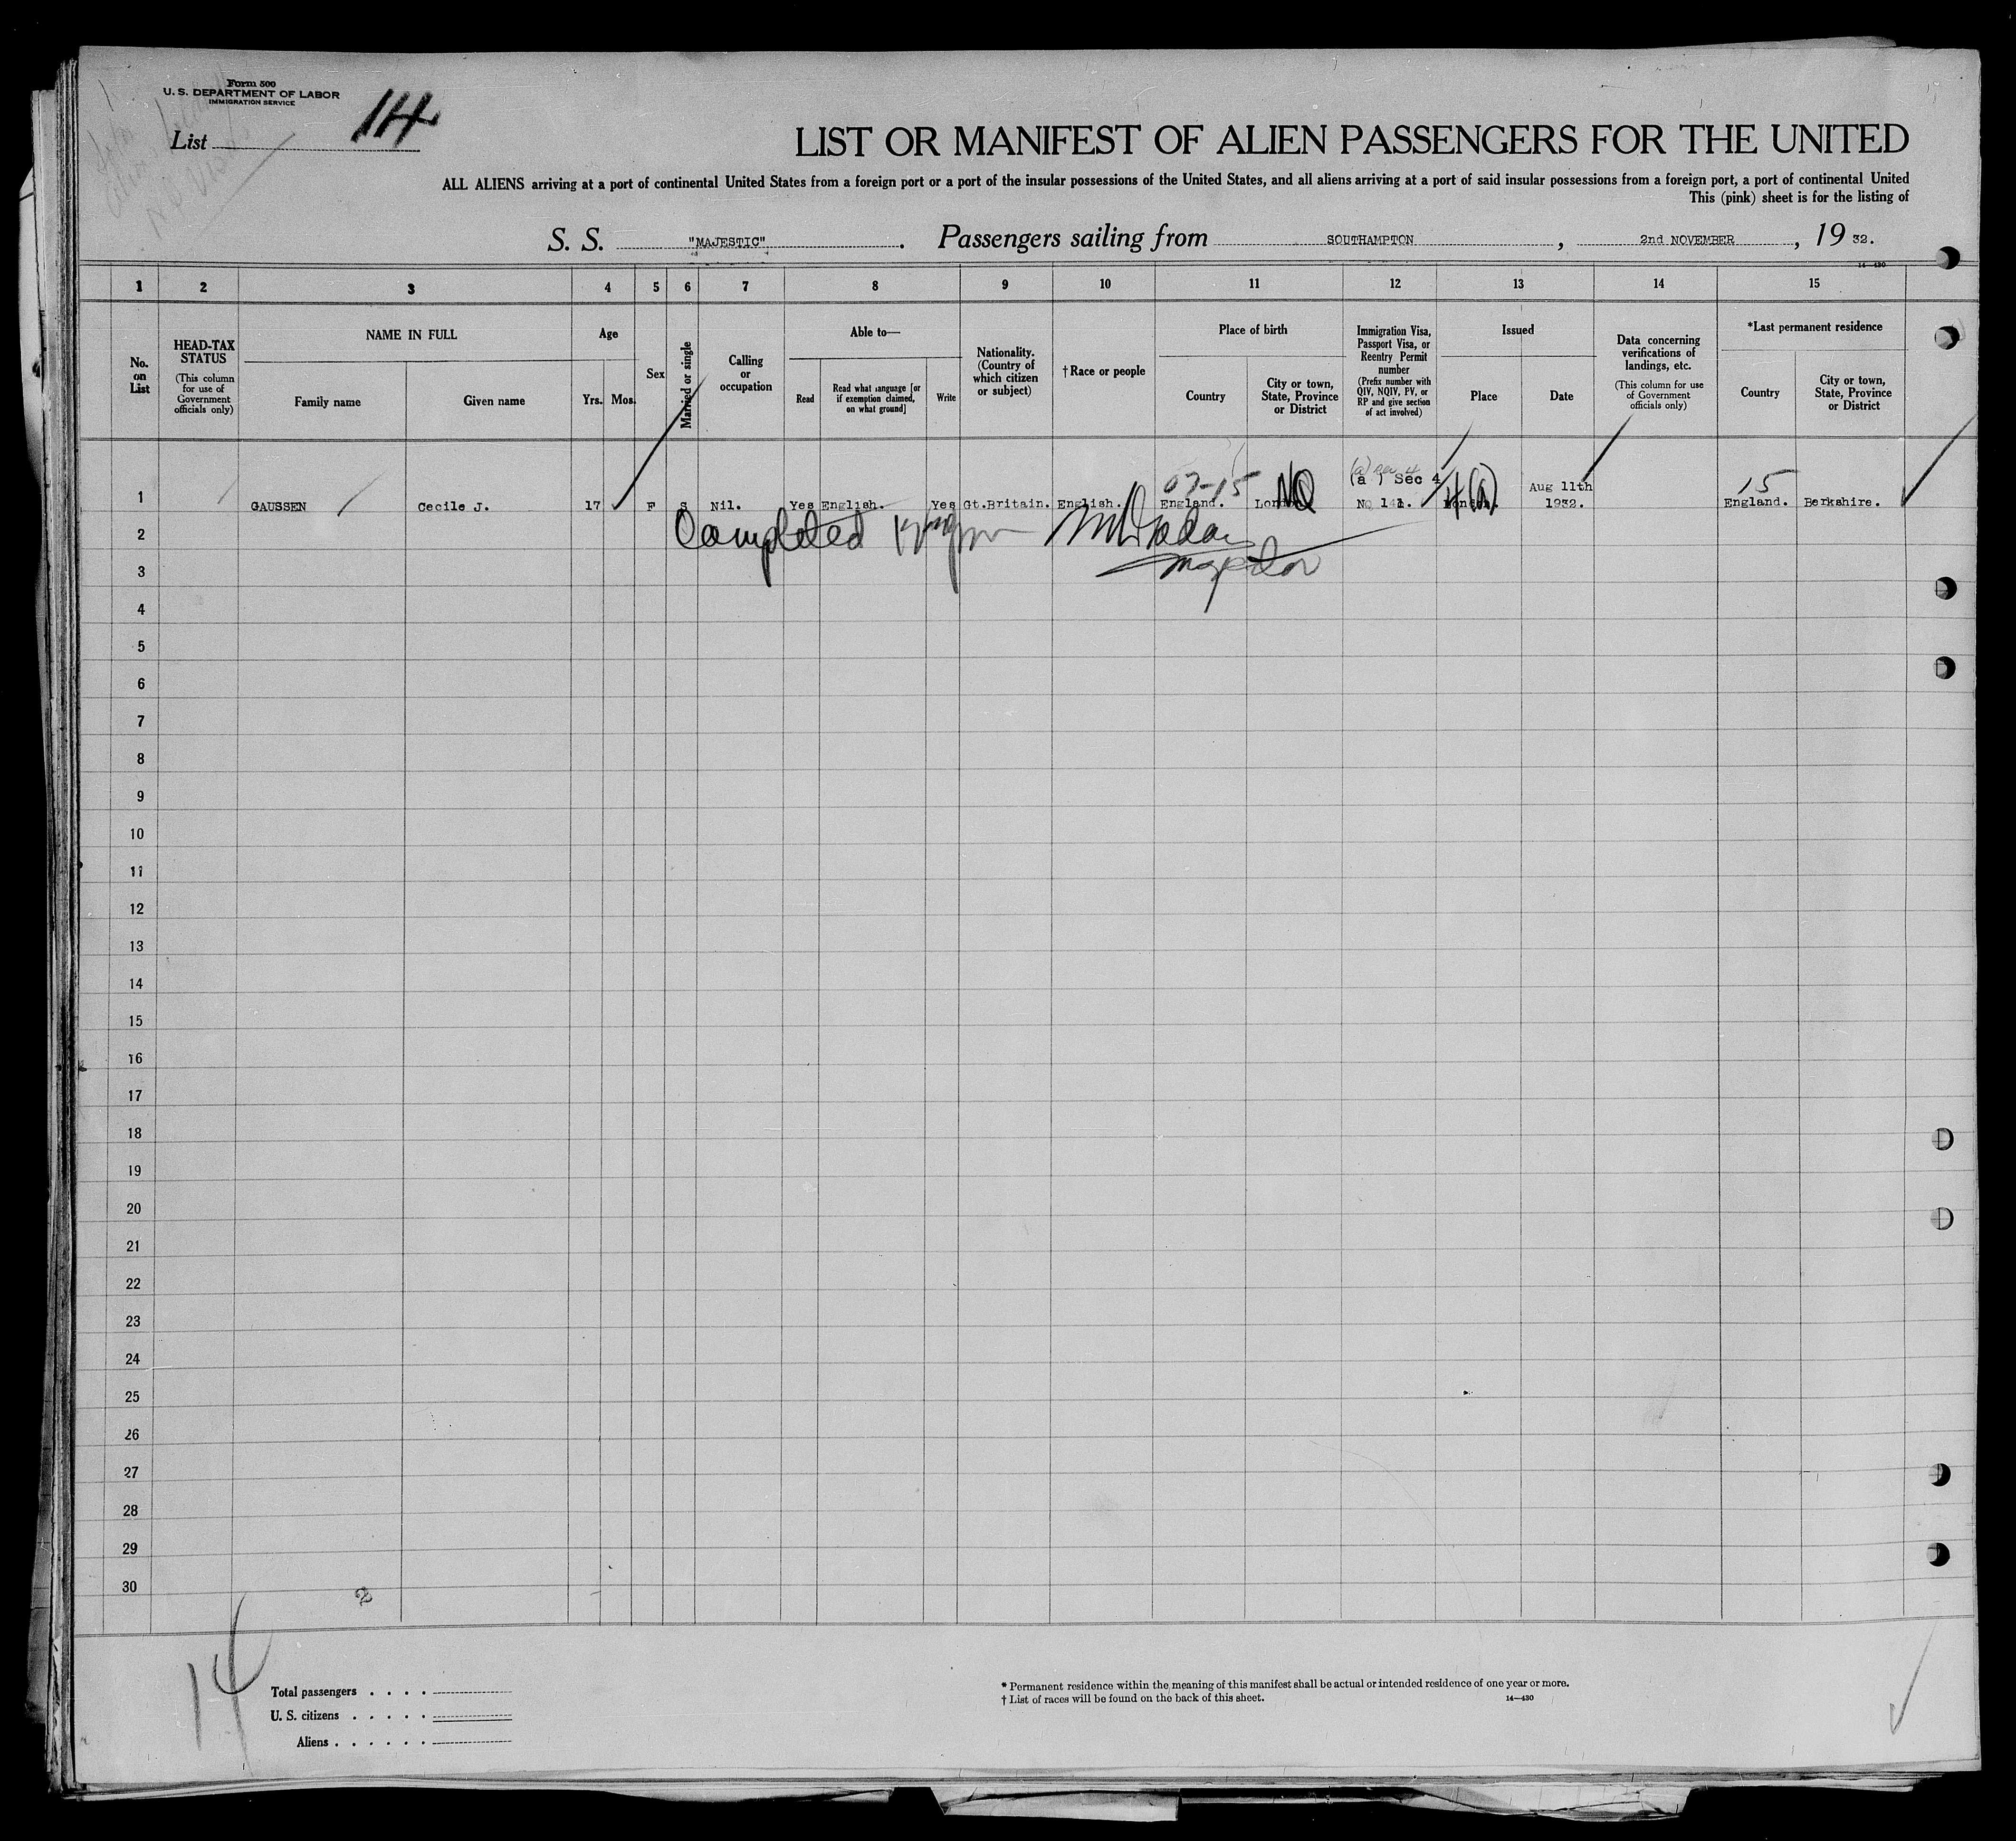 Form 500
U. S. DEPARTMENT OF LABOR
IMMIGRATION SERVICE
List 14
LIST OR MANIFEST OF ALIEN PASSENGERS FOR THE UNITED
ALL ALIENS arriving at a port of continental United States from a foreign port or a port of the insular possessions of the United States, and all aliens arriving at a port of said insular possessions from a foreign port, a port of continental United
This (pink) sheet is for the listing of
S. S. "MAJESTIC". Passengers sailing from SOUTHAMPTON, 2nd NOVEMBER, 19 32.
14—430
1 2 3 4 5 6 7 8 9 10 11 12 13 14 15
No. on List
HEAD-TAX STATUS
(This column for use of Government officials only)
NAME IN FULL
Family name
Given name
Age
Yrs. Mos.
Sex
Married or single
Calling or occupation
Able to—
Read
Read what language [or if exemption claimed, on what ground]
Write
Nationality. (Country of which citizen or subject)
†Race or people
Place of birth
Country
City or town, State, Province or District
Immigration Visa, Passport Visa, or Reentry Permit number
(Prefix number with QIV, NQIV, PV, or RP and give section of act involved)
Issued
Place
Date
Data concerning verifications of landings, etc.
(This column for use of Government officials only)
*Last permanent residence
Country
City or town, State, Province or District
07-15 NQ (a) Sec 4 4(a) Aug 11th 15
1 GAUSSEN Cecile J. 17 F S Nil. Yes English. Yes Gt.Britain. English. England. London. London. 1932. England. Berkshire.
Completed
2
Inspector
3
4
5
6
7
8
9
10
11
12
13
14
15
16
17
18
19
20
21
22
23
24
25
26
27
28
29
30
2
14
Total passengers . . . .
U. S. citizens . . . . .
Aliens . . . . . .
* Permanent residence within the meaning of this manifest shall be actual or intended residence of one year or more.
† List of races will be found on the back of this sheet.
14—430